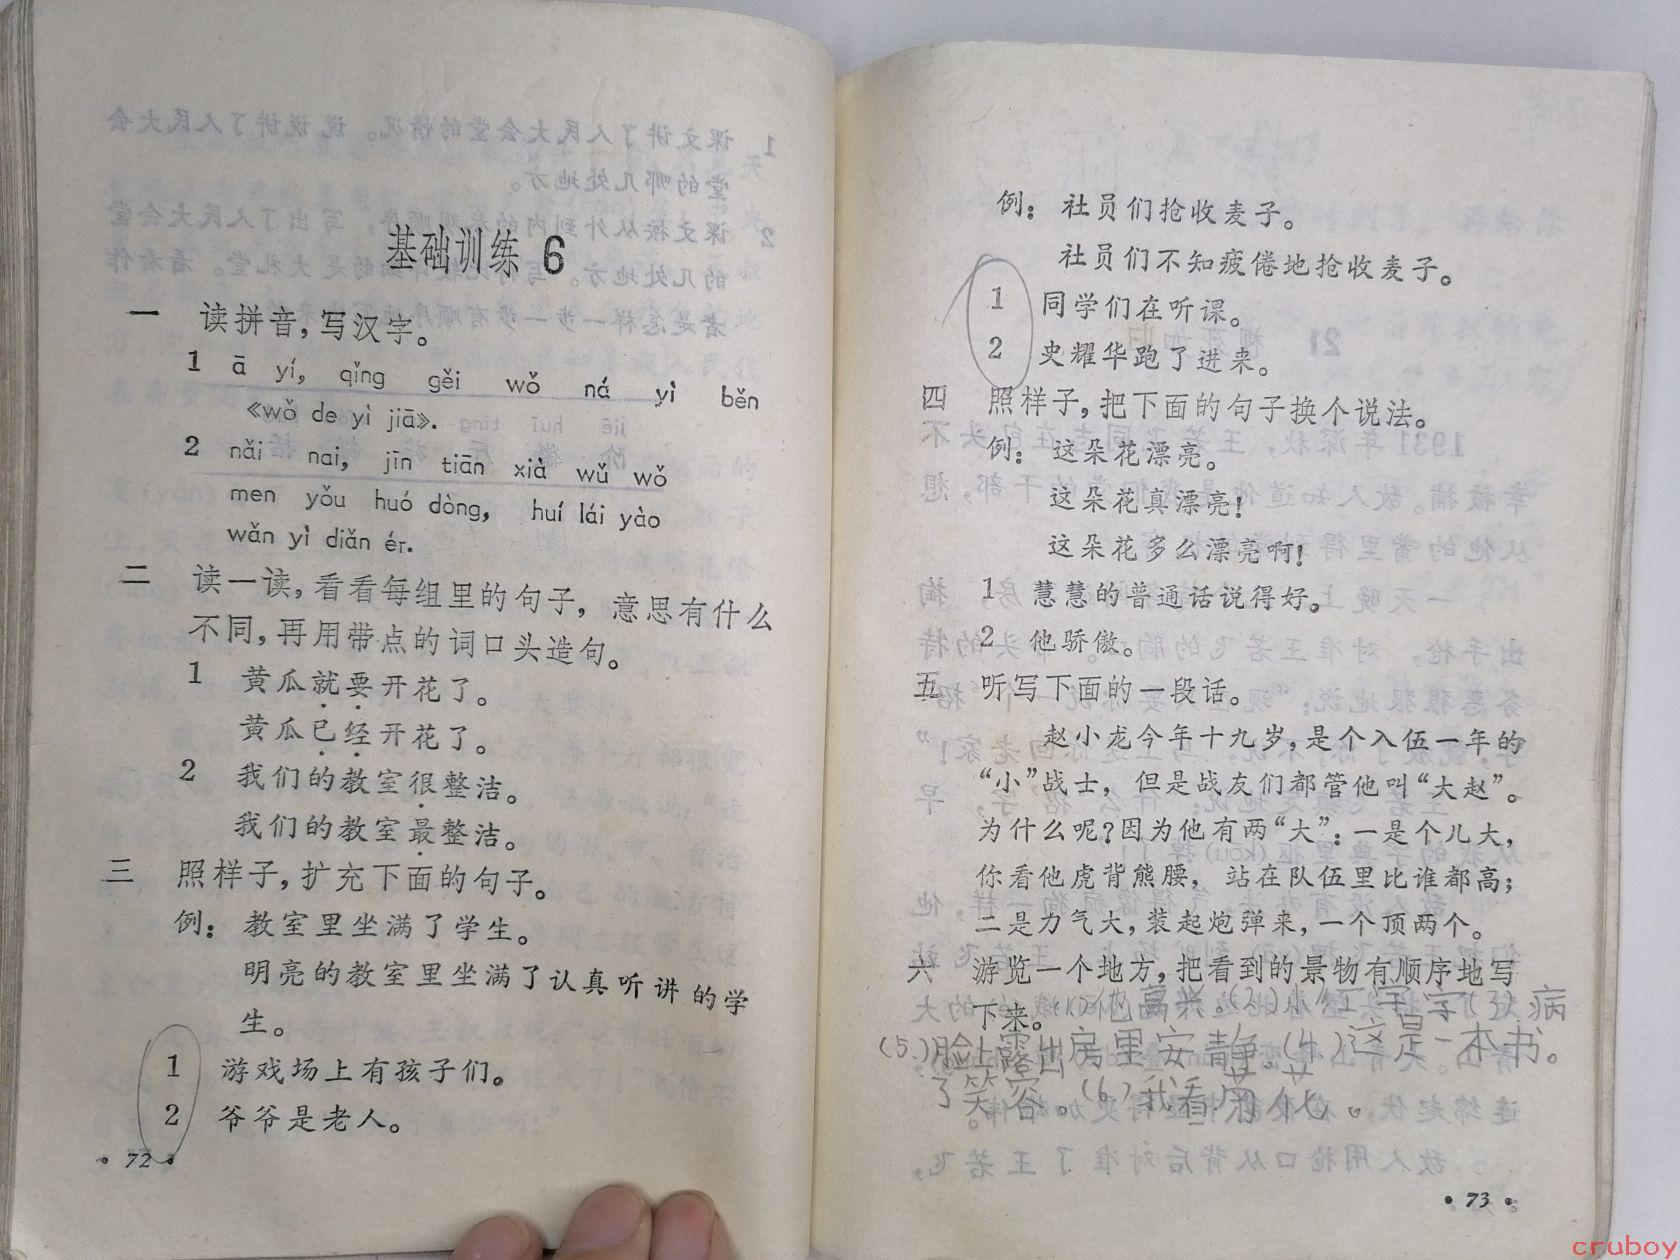 基础训练 6
一 读拼音，写汉字。
1 ā yí, qǐng gěi wǒ ná yì běn
《wǒ de yì jiā》.
2 nǎi nai, jīn tiān xià wǔ wǒ
men yǒu huó dòng, huí lái yào
wǎn yì diǎn ér.
二 读一读，看看每组里的句子，意思有什么
不同，再用带点的词口头造句。
1 黄瓜就要开花了。
黄瓜已经开花了。
2 我们的教室很整洁。
我们的教室最整洁。
三 照样子，扩充下面的句子。
例：教室里坐满了学生。
明亮的教室里坐满了认真听讲的学
生。
1 游戏场上有孩子们。
2 爷爷是老人。
·72·
例：社员们抢收麦子。
社员们不知疲倦地抢收麦子。
1 同学们在听课。
2 史耀华跑了进来。
四 照样子，把下面的句子换个说法。
例：这朵花漂亮。
这朵花真漂亮！
这朵花多么漂亮啊！
1 慧慧的普通话说得好。
2 他骄傲。
五 听写下面的一段话。
赵小龙今年十九岁，是个入伍一年的
“小”战士，但是战友们都管他叫“大赵”。
为什么呢？因为他有两“大”：一是个儿大，
你看他虎背熊腰，站在队伍里比谁都高；
二是力气大，装起炮弹来，一个顶两个。
六 游览一个地方，把看到的景物有顺序地写
下来。
(1)他高兴。(2)小红写字(3)病
房里安静。(4)这是一本书。
(5.)脸上露出
了笑容。(6)我看
·73·
cruboy